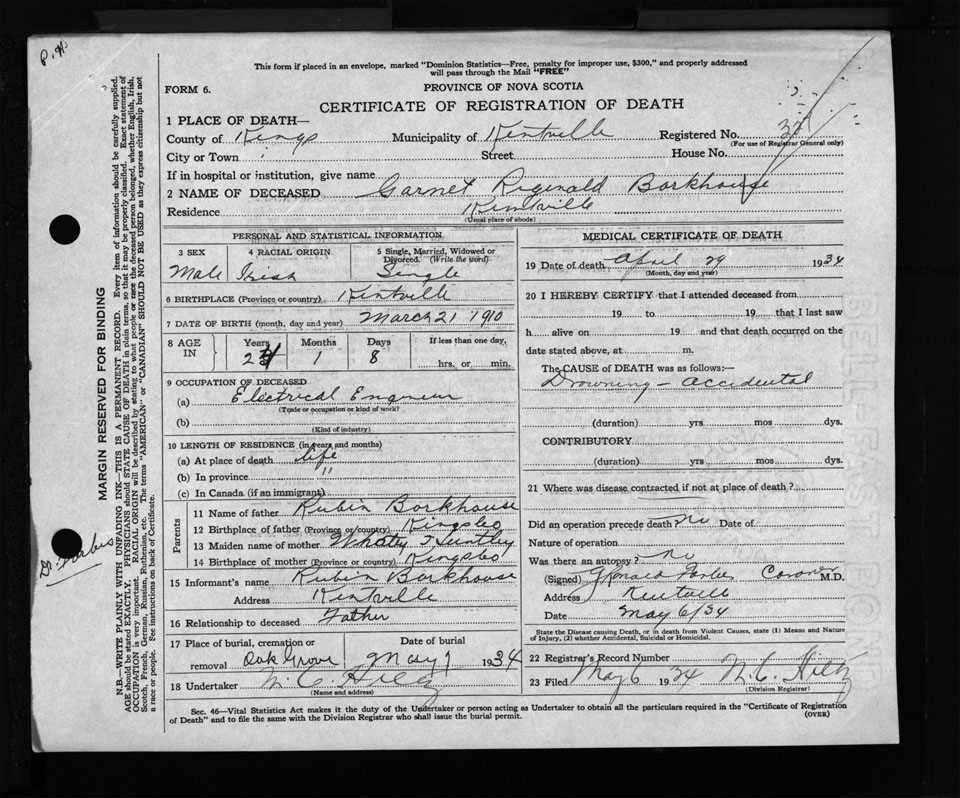 P.H.
This form if placed in an envelope, marked "Dominion Statistics—Free, penalty for improper use, $300," and properly addressed
will pass through the Mail "FREE"
FORM 6.
PROVINCE OF NOVA SCOTIA
CERTIFICATE OF REGISTRATION OF DEATH
1 PLACE OF DEATH—
County of Kings Municipality of Kentville Registered No.
(For use of Registrar General only)
City or Town Street House No.
If in hospital or institution, give name
2 NAME OF DECEASED Garnet Reginald Borkhouse
Residence Kentville
(Usual place of abode)
PERSONAL AND STATISTICAL INFORMATION
3 SEX 4 RACIAL ORIGIN 5 Single, Married, Widowed or
Divorced. (Write the word)
Male Irish Single
6 BIRTHPLACE (Province or country) Kentville
7 DATE OF BIRTH (month, day and year) March 21 1910
8 AGE IN Years Months Days If less than one day,
24 1 8 hrs. or min.
9 OCCUPATION OF DECEASED
(a) Electrical Engineer
(Trade or occupation or kind of work)
(b)
(Kind of industry)
10 LENGTH OF RESIDENCE (in years and months)
(a) At place of death life
(b) In province "
(c) In Canada (if an immigrant)
Parents
11 Name of father Rubin Borkhouse
12 Birthplace of father (Province or country) Kingsbo
13 Maiden name of mother Huntley
14 Birthplace of mother (Province or country) Kingsbo
15 Informant's name Rubin Borkhouse
Address Kentville
16 Relationship to deceased Father
17 Place of burial, cremation or Date of burial
removal Oak Grove May 1 1934
18 Undertaker N. C. Hiltz
(Name and address)
MEDICAL CERTIFICATE OF DEATH
19 Date of death April 29 1934
(Month, day and year)
20 I HEREBY CERTIFY that I attended deceased from
19 to 19 that I last saw
h alive on 19 and that death occurred on the
date stated above, at m.
The CAUSE OF DEATH was as follows:—
Drowning — accidental
(duration) yrs mos dys.
CONTRIBUTORY
(duration) yrs mos dys.
21 Where was disease contracted if not at place of death?
Did an operation precede death no Date of
Nature of operation
Was there an autopsy? no
(Signed) Forbes Coroner M.D.
Address Kentville
Date May 6/34
State the Disease causing Death, or in death from Violent Causes, state (1) Means and Nature
of Injury, (2) whether Accidental, Suicidal or Homicidal.
22 Registrar's Record Number
23 Filed May 6 1934 N. C. Hiltz
(Division Registrar)
Sec. 46—Vital Statistics Act makes it the duty of the Undertaker or person acting as Undertaker to obtain all the particulars required in the "Certificate of Registration
of Death" and to file the same with the Division Registrar who shall issue the burial permit. (OVER)
MARGIN RESERVED FOR BINDING
N.B.—WRITE PLAINLY WITH UNFADING INK—THIS IS A PERMANENT RECORD. Every item of information should be carefully supplied.
AGE should be stated EXACTLY. PHYSICIANS should STATE CAUSE OF DEATH in plain terms, so that it may be properly classified. Exact statement of
OCCUPATION is very important. RACIAL ORIGIN will be described by stating to what people or race the deceased person belonged, whether English, Irish,
Scotch, French, German, Russian, Ruthenian, etc. The terms "AMERICAN" or "CANADIAN" SHOULD NOT BE USED as they express citizenship but not
a race or people. See instructions on back of Certificate.
Dr. Forbes